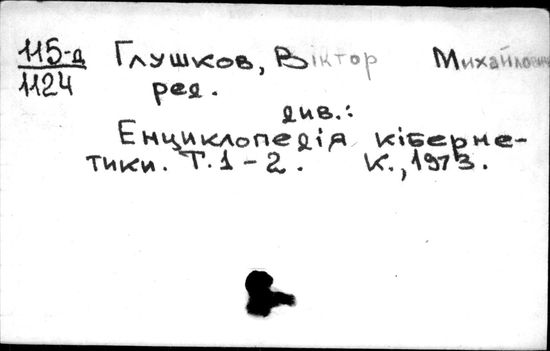 115-д
1124
Глушков, Віктор Михайлович
ред.
див.:
Енциклопедія кіберне-
тики. Т.1-2. К., 1973.